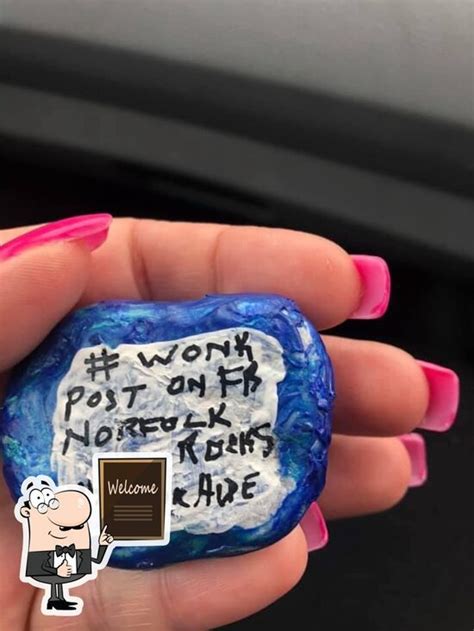 # WONK
POST ON FB
NORFOLK
ROCKS
Welcome